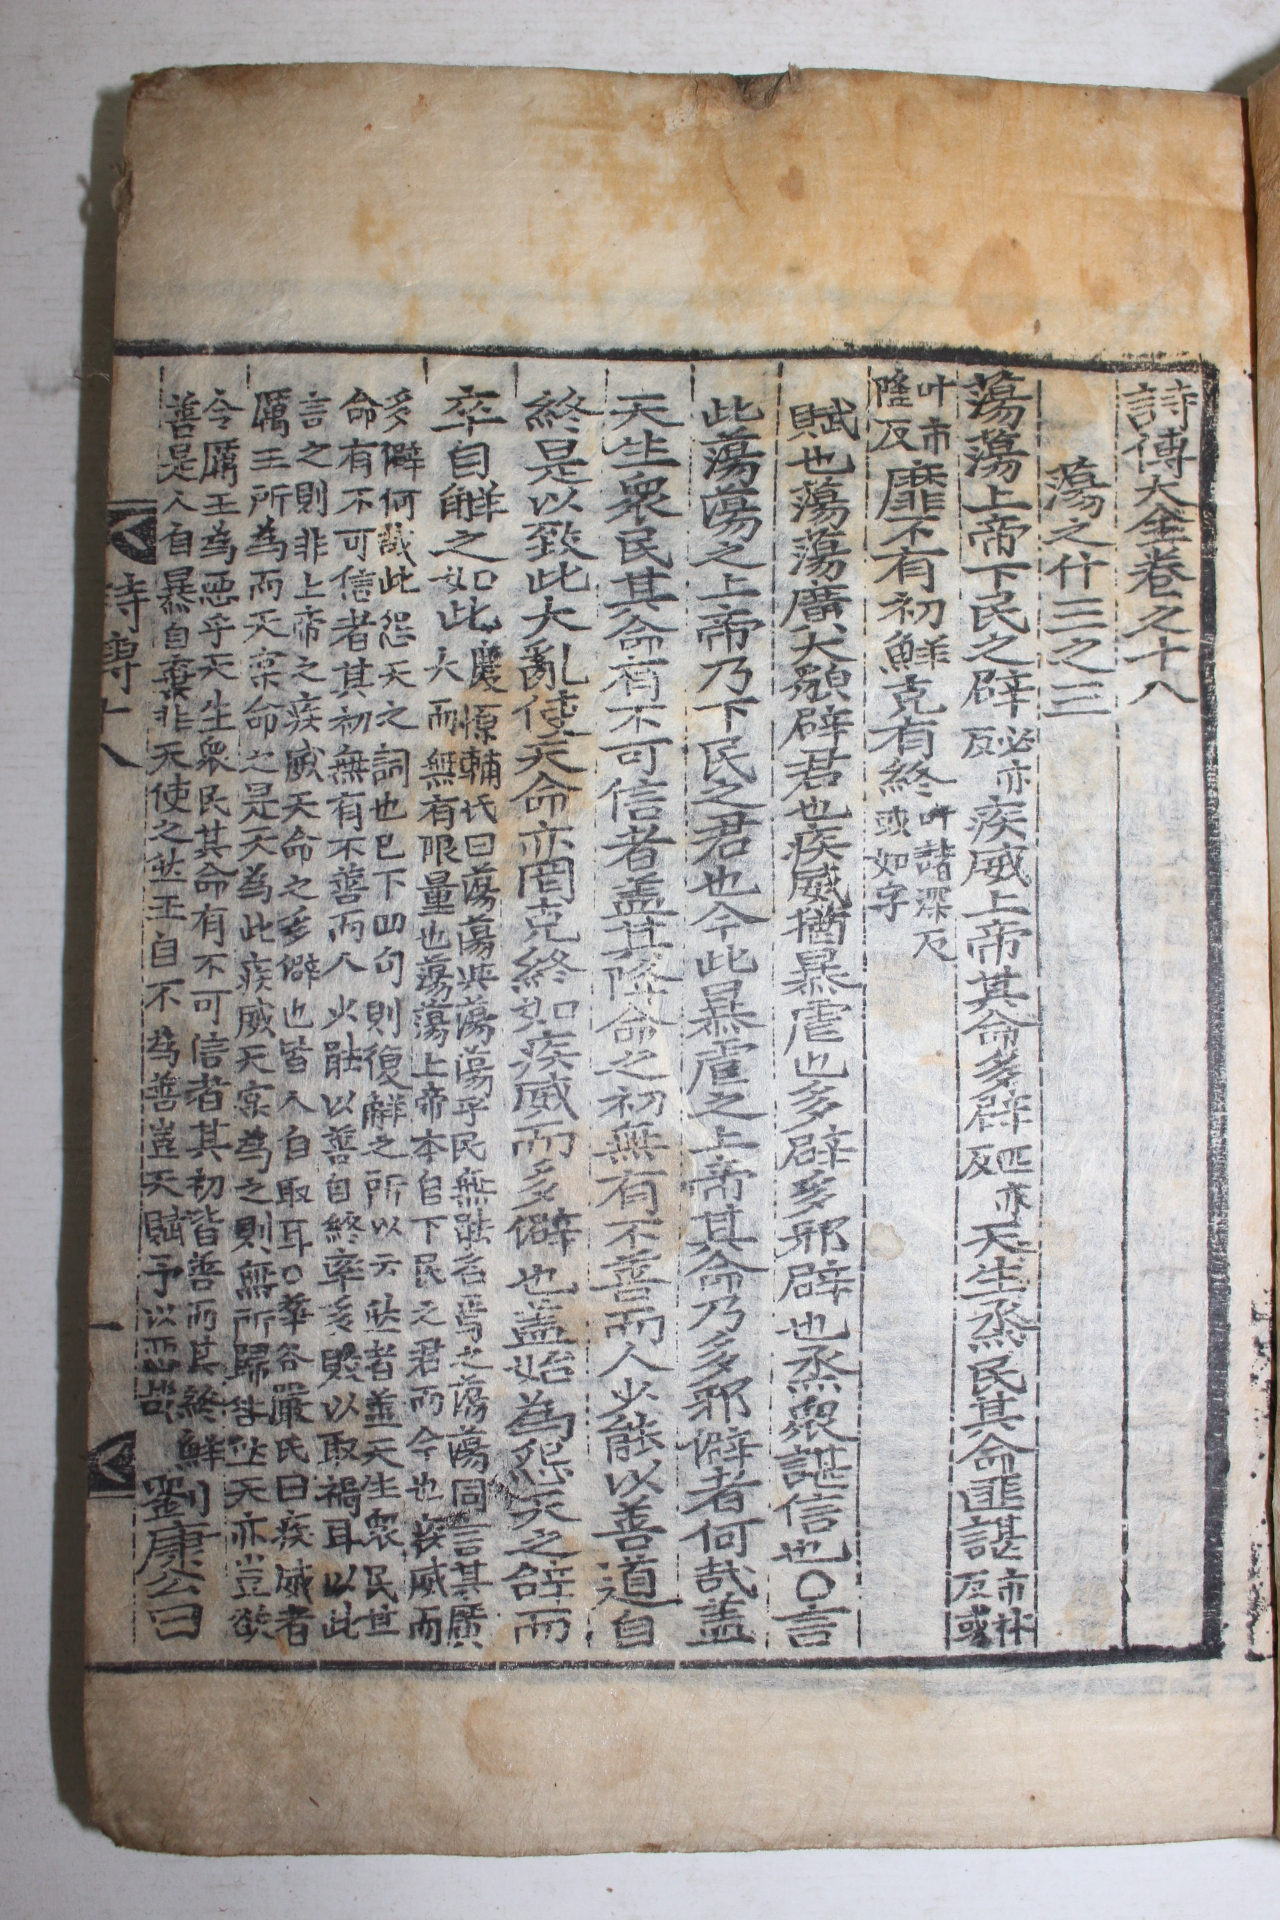 詩傳大全卷之十八
蕩之什三之三
蕩蕩上帝下民之辟必亦反疾威上帝其命多辟匹亦反天生烝民其命匪諶市林反或
叶市隆反靡不有初鮮克有終叶諸深反或如字
賦也蕩蕩廣大貌辟君也疾威猶暴虐也多辟多邪辟也烝衆諶信也○言
此蕩蕩之上帝乃下民之君也今此暴虐之上帝其命乃多邪僻者何哉盖
天生衆民其命有不可信者盖其降命之初無有不善而人少能以善道自
終是以致此大亂使天命亦罔克終如疾威而多僻也盖始為怨天之辞而
卒自解之如此慶源輔氏曰蕩蕩與蕩蕩乎民無能名焉之蕩蕩同言其廣
大而無有限量也蕩蕩上帝本自下民之君而今也疾威而
多僻何哉此怨天之詞也已下四句則復解之所以云然者盖天生衆民其
命有不可信者其初無有不善而人少能以善自終率多敗以取禍耳以此
言之則非上帝之疾威天命之多僻也皆人自取耳○華谷嚴氏曰疾威者
厲王所為而天寔命之是天為此疾威天寔為之則無所歸咎然天亦豈欲
今厲王為惡乎天生衆民其命有不可信者其初皆善而其終鮮
善是人自暴自棄非天使之然王自不為善豈天賦予以惡哉
劉康公曰
詩傳十八
一